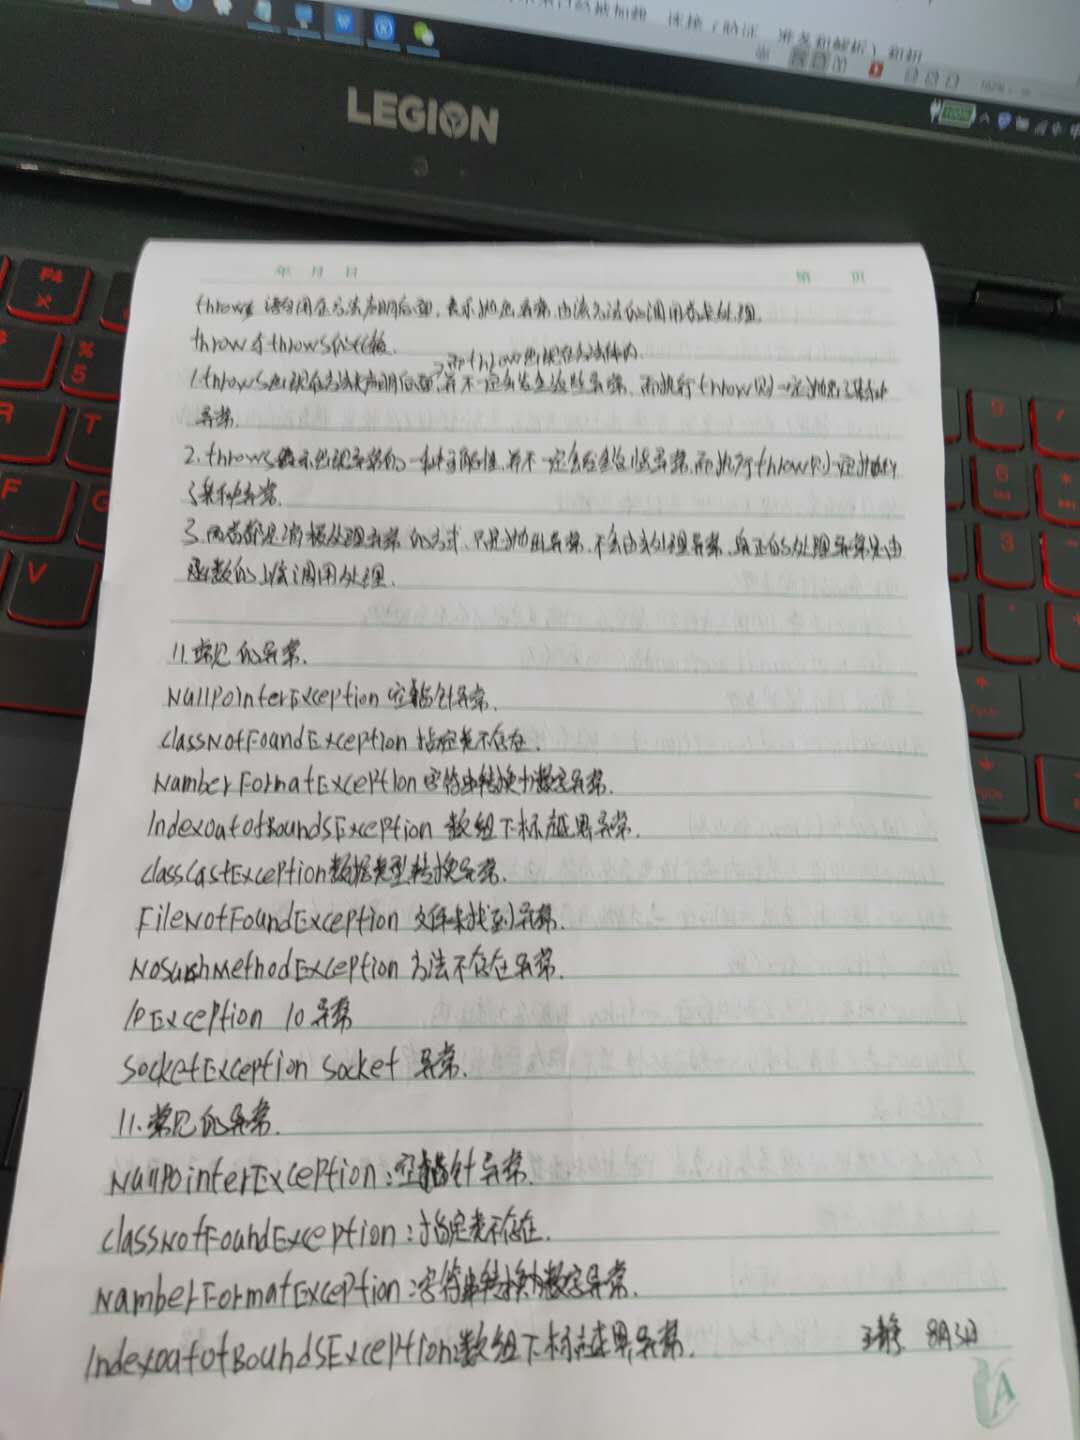 LEGION
年 月 日
第 页
throws 语句用在方法声明后面，表示抛出异常，由该方法的调用者来处理.
throw与throws的比较.
而throw出现在方法体内.
1.throws出现在方法声明后面,并不一定会发生这些异常, 而执行throw则一定抛出了某种
异常.
2.throws表示出现异常的一种可能性,并不一定会发生这些异常,而执行throw则一定抛出
了某种异常.
3.两者都是消极处理异常的方式,只是抛出异常,不会由去处理异常,真正的处理异常是由
函数的上层调用处理.
11.常见的异常.
NullPointerException 空指针异常.
ClassNotFoundException 指定类不存在.
NamberFormatException 字符串转换为数字异常.
IndexoutofBoundsException 数组下标越界异常.
ClassCastException数据类型转换异常.
FileNotFoundException 文件未找到异常.
NoSuchMethodException 方法不存在异常.
IOException IO异常
SocketException Socket 异常.
11.常见的异常.
NullPointerException:空指针异常.
ClassNotFoundException:指定类不存在.
NamberFormatException:字符串转换为数字异常.
IndexoutofBoundsException:数组下标越界异常.
王静 8月3日